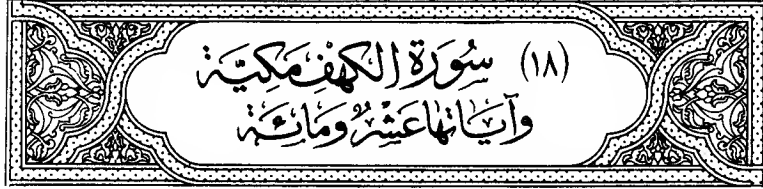 (١٨) سُورَةُ الكهْفِ مَكِيَّة
وَآيَاتهَا عَشْرٌ وَمَائَة